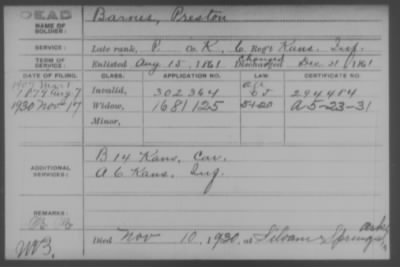 DEAD
NAME OF SOLDIER: Barnes, Preston
SERVICE: Late rank, P. Co K, 6 Reg't Kans. Inf.
Changed
TERM OF SERVICE: Enlisted Aug 15, 1861 Discharged Dec. 21 1861
DATE OF FILING. CLASS. APPLICATION NO. LAW. CERTIFICATE NO.
1879 Aug. 7 Invalid, 302364 294484
1930 Nov 17 Widow, 1681125 5-1-20 A-5-23-31
Minor,
ADDITIONAL SERVICES:
B 14 Kans. Cav.
A 6 Kans. Inf.
REMARKS:
Died Nov 10, 1930, at Siloam Springs, Ark.